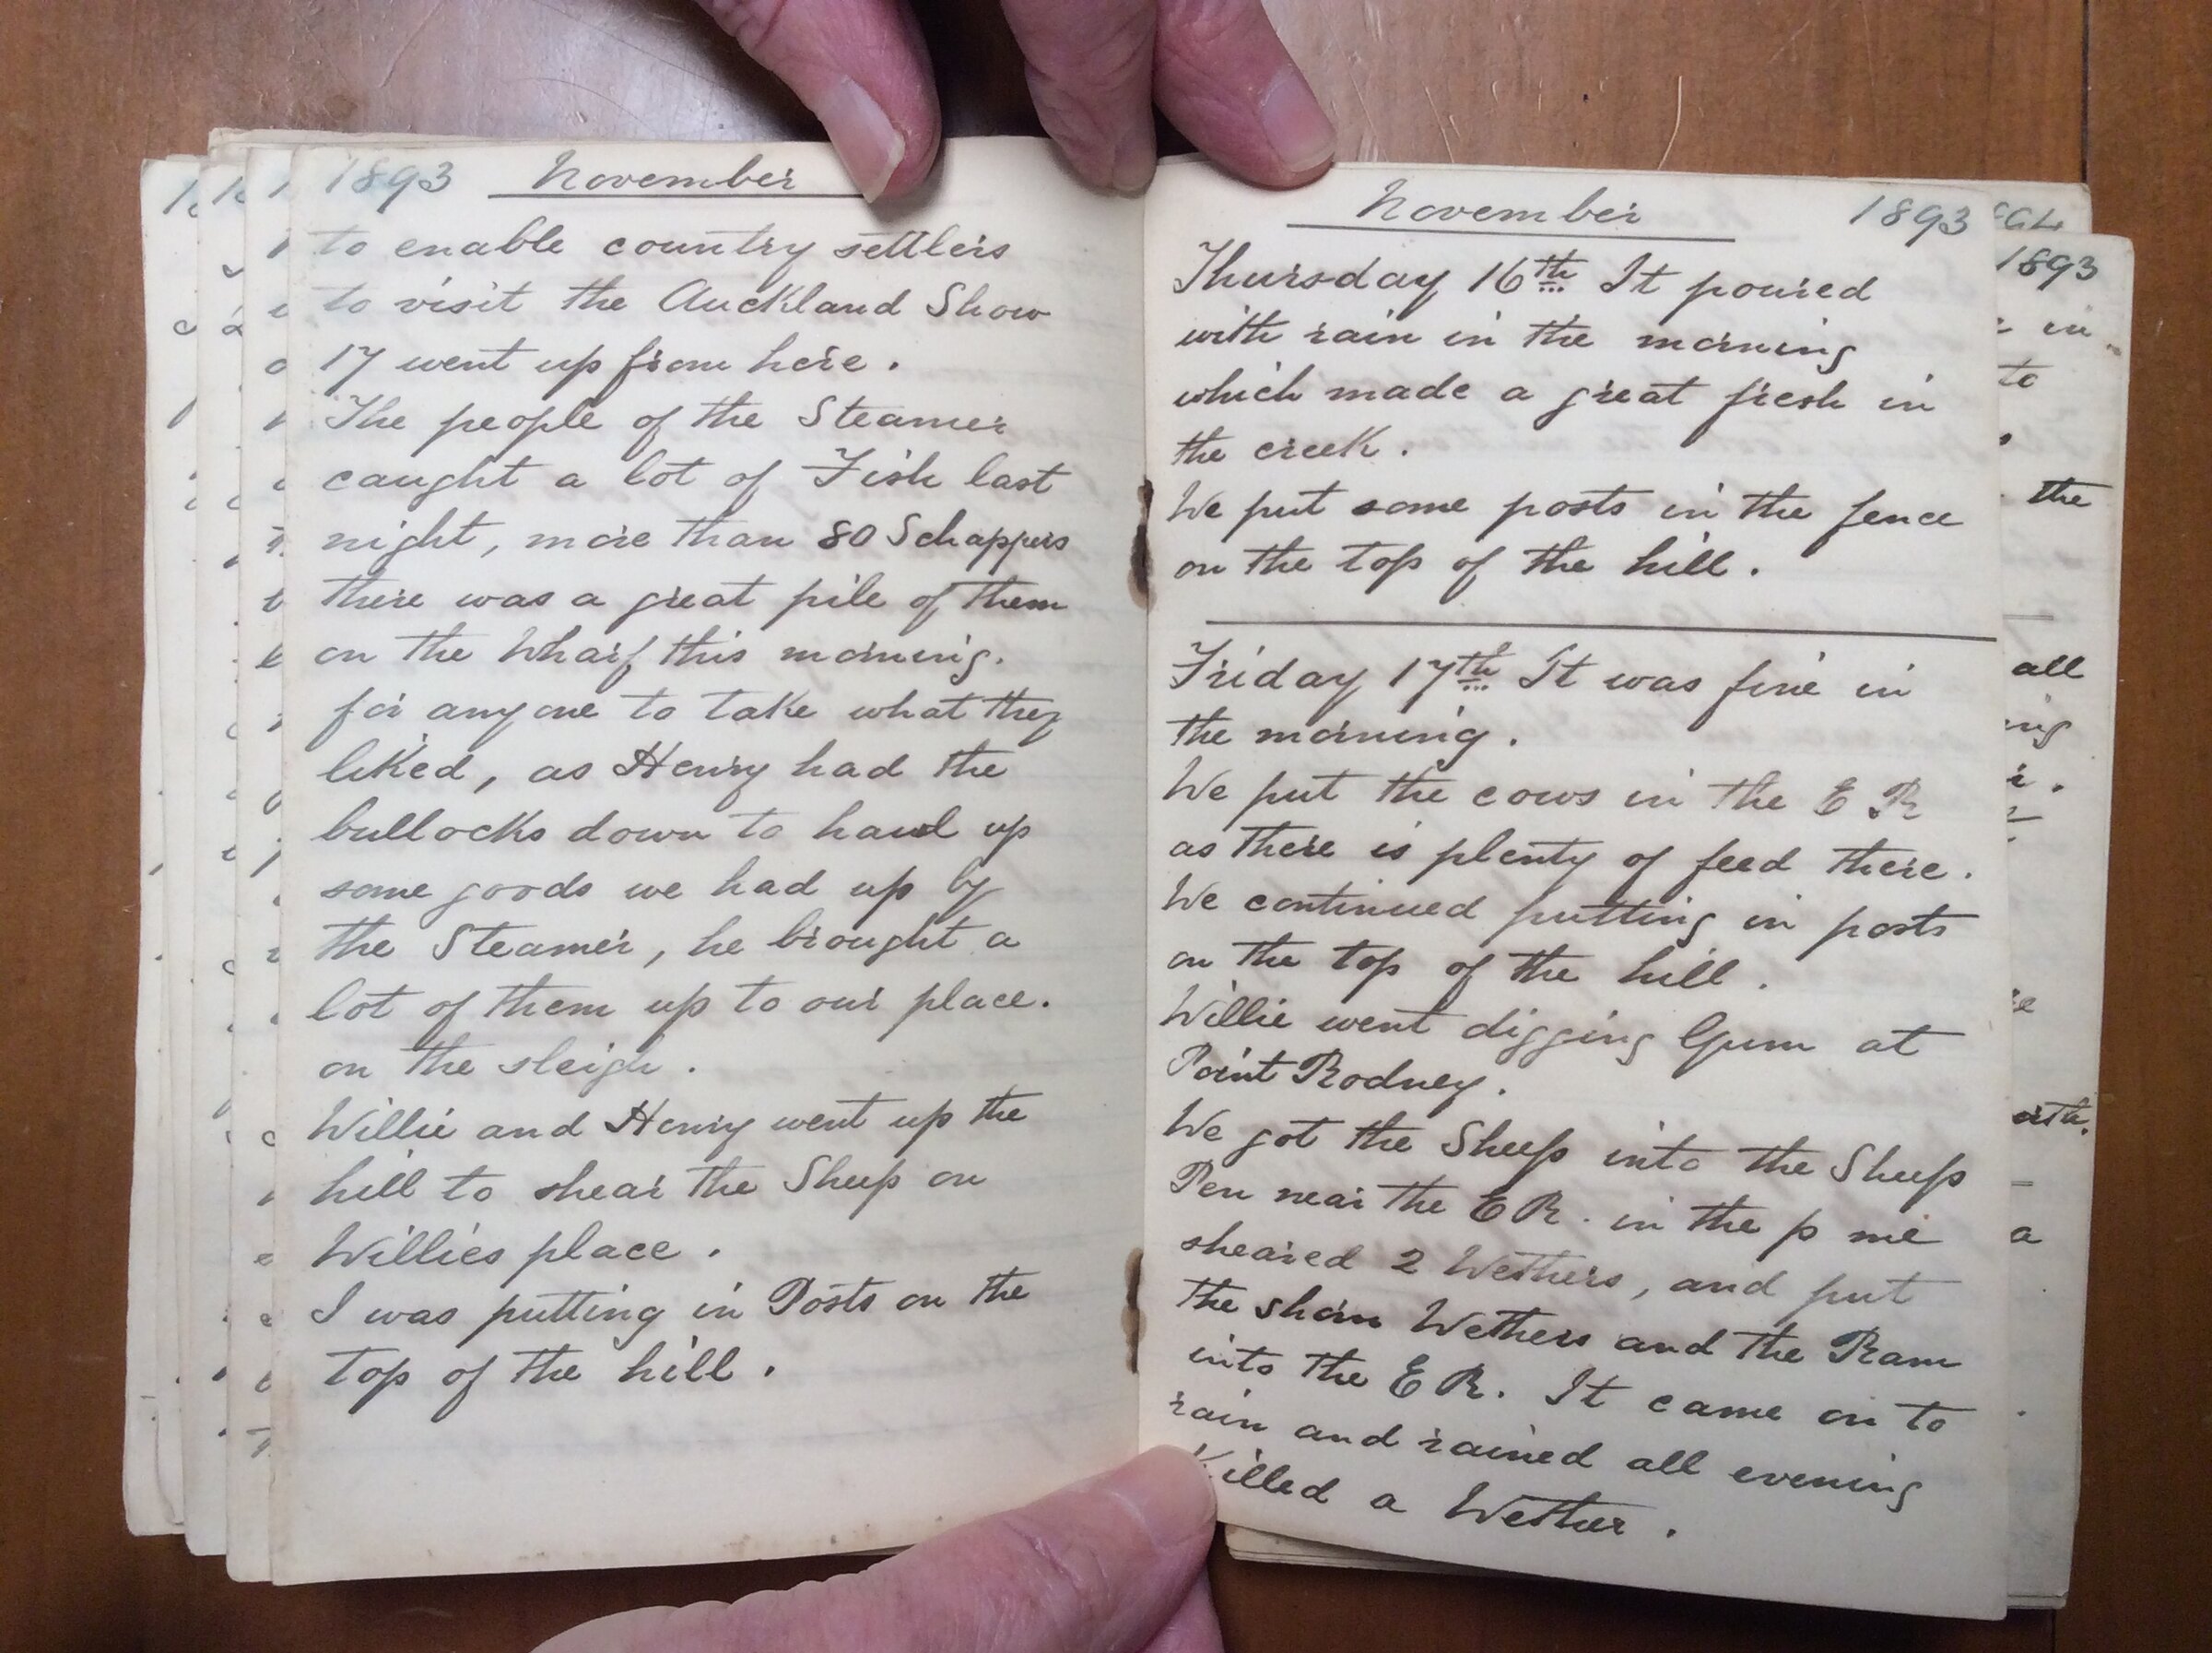 1893 November
to enable country settlers
to visit the Auckland Show
17 went up from here.
The people of the Steamer
caught a lot of Fish last
night, more than 80 Schappers
there was a great pile of them
on the Wharf this morning.
for any one to take what they
liked, as Henry had the
bullocks down to haul up
some goods we had up by
the Steamer, he brought a
lot of them up to our place.
on the sleigh.
Willie and Henry went up the
hill to shear the Sheep on
Willies place.
I was putting in Posts on the
top of the hill.
November 1893
Thursday 16th It poured
with rain in the morning
which made a great fresh in
the creek.
We put some posts in the fence
on the top of the hill.
Friday 17th It was fine in
the morning.
We put the cows in the E R
as there is plenty of feed there.
We continued putting in posts
on the top of the hill.
Willie went digging Gum at
Point Rodney.
We got the Sheep into the Sheep
Pen near the E R. in the p me
sheared 2 Wethers, and put
the shorn Wethers and the Ram
into the E R. It came on to
rain and rained all evening
Killed a Wether.
1893
in
to
the
all
a